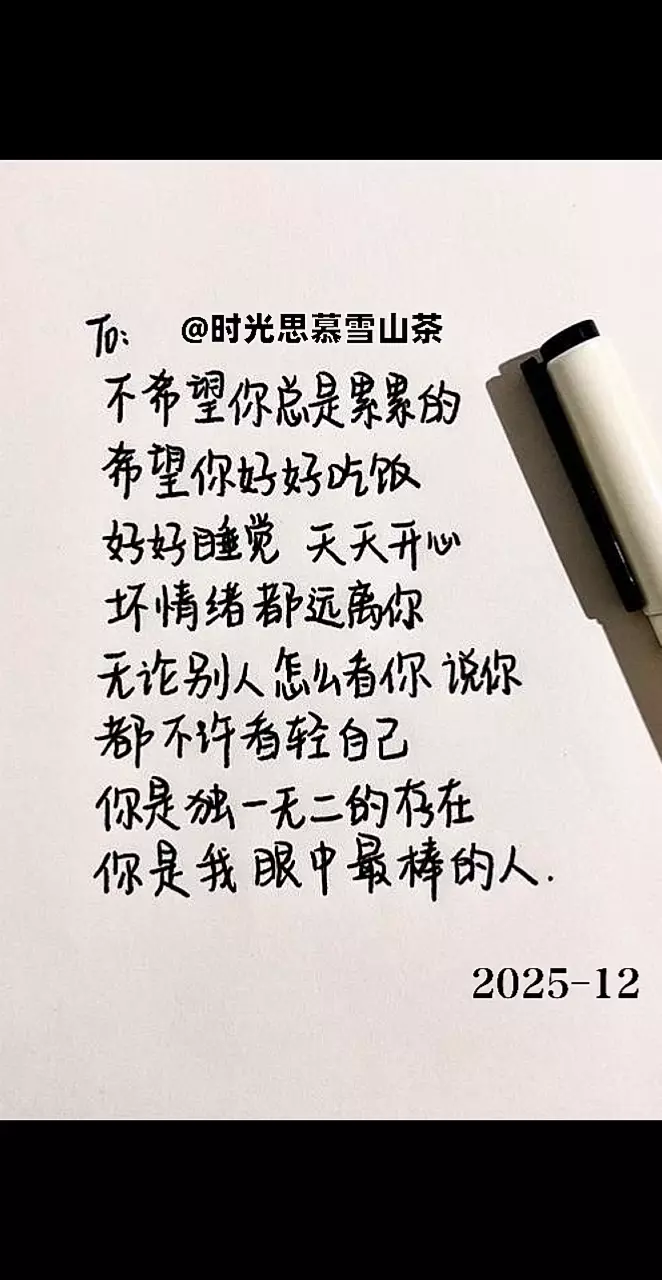 To: @时光思慕雪山茶
不希望你总是累累的
希望你好好吃饭
好好睡觉 天天开心
坏情绪都远离你
无论别人怎么看你 说你
都不许看轻自己
你是独一无二的存在
你是我眼中最棒的人.
2025-12